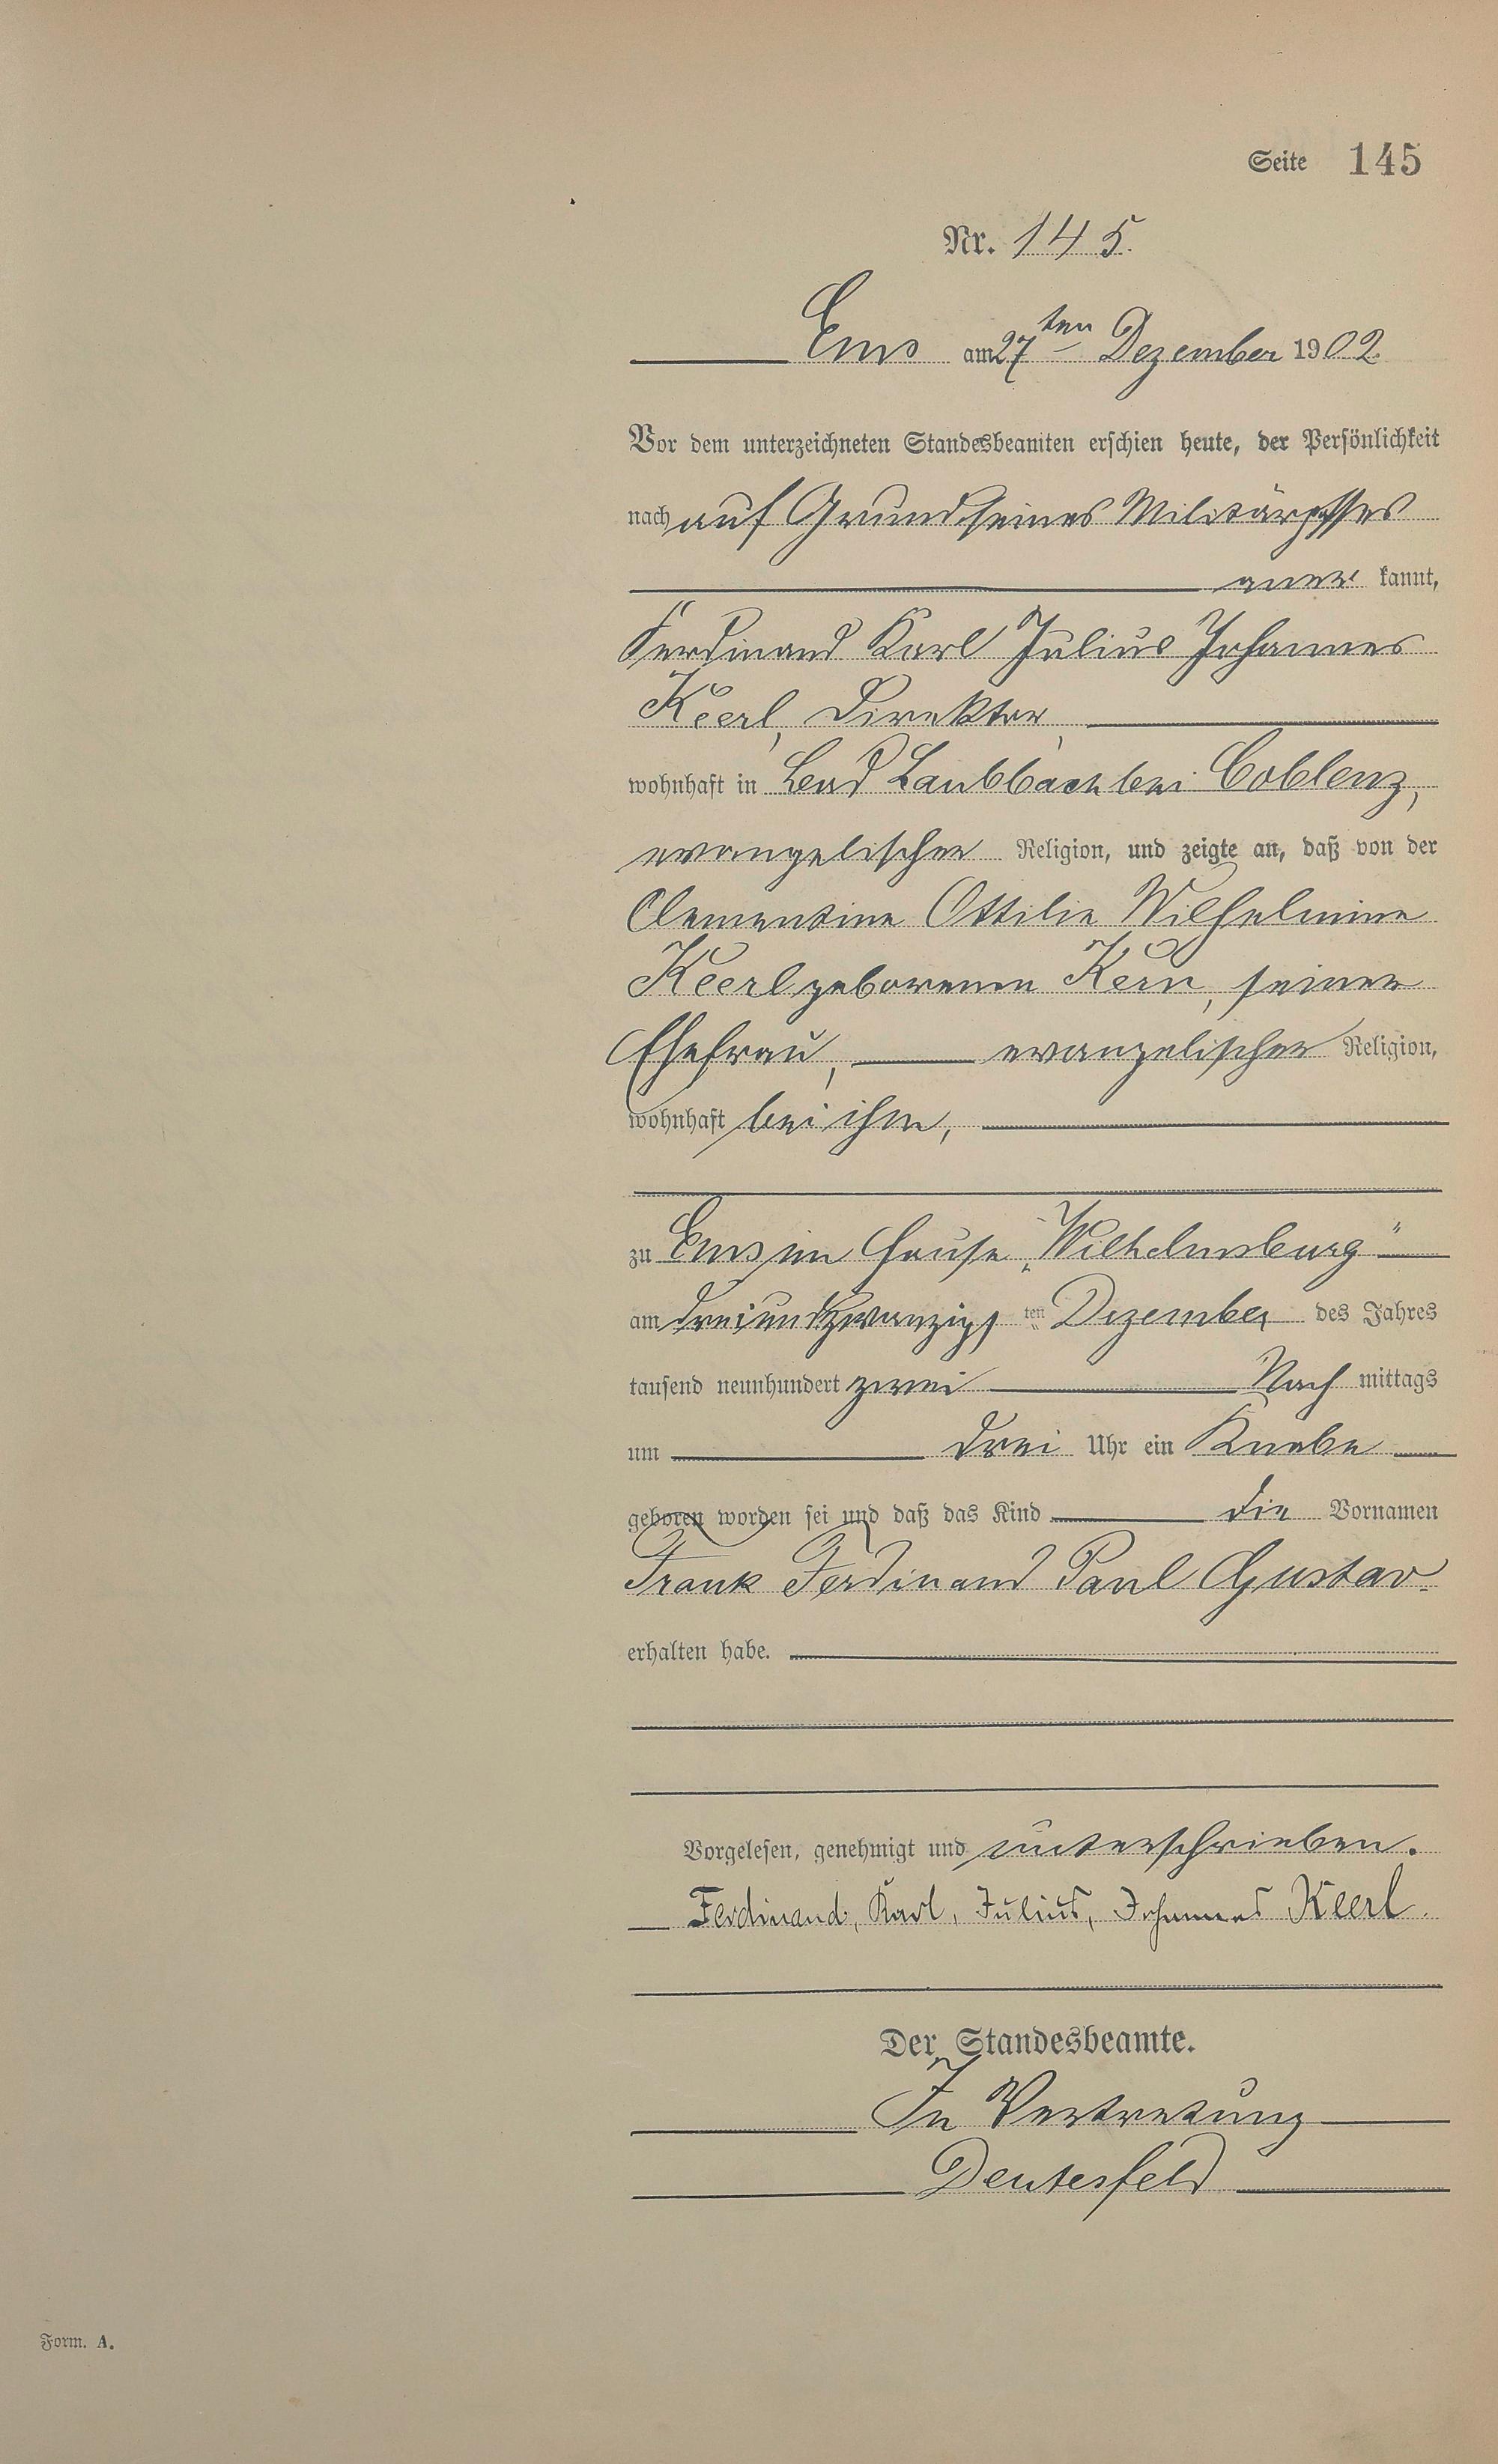 Seite 145
Nr. 145.
Ems am 27ten Dezember 1902.
Vor dem unterzeichneten Standesbeamten erschien heute, der Persönlichkeit
nach auf Grund seines Militärpasses
aner kannt,
Ferdinand Karl Julius Johannes
Keerl, Direktor,
wohnhaft in Bad Laubbach bei Coblenz,
evangelischer Religion, und zeigte an, daß von der
Clementine Ottilie Wilhelmine
Keerl geborenen Kern, seiner
Ehefrau, evangelischer Religion,
wohnhaft bei ihm,
zu Ems im Hause „Wilhelmsburg“
am dreiundzwanzigs ten Dezember des Jahres
tausend neunhundert zwei Nach mittags
um drei Uhr ein Knabe
geboren worden sei und daß das Kind die Vornamen
Frank Ferdinand Paul Gustav
erhalten habe.
Vorgelesen, genehmigt und unterschrieben.
Ferdinand, Karl, Julius, Johannes Keerl.
Der Standesbeamte.
In Vertretung
Deutesfeld
Form. A.